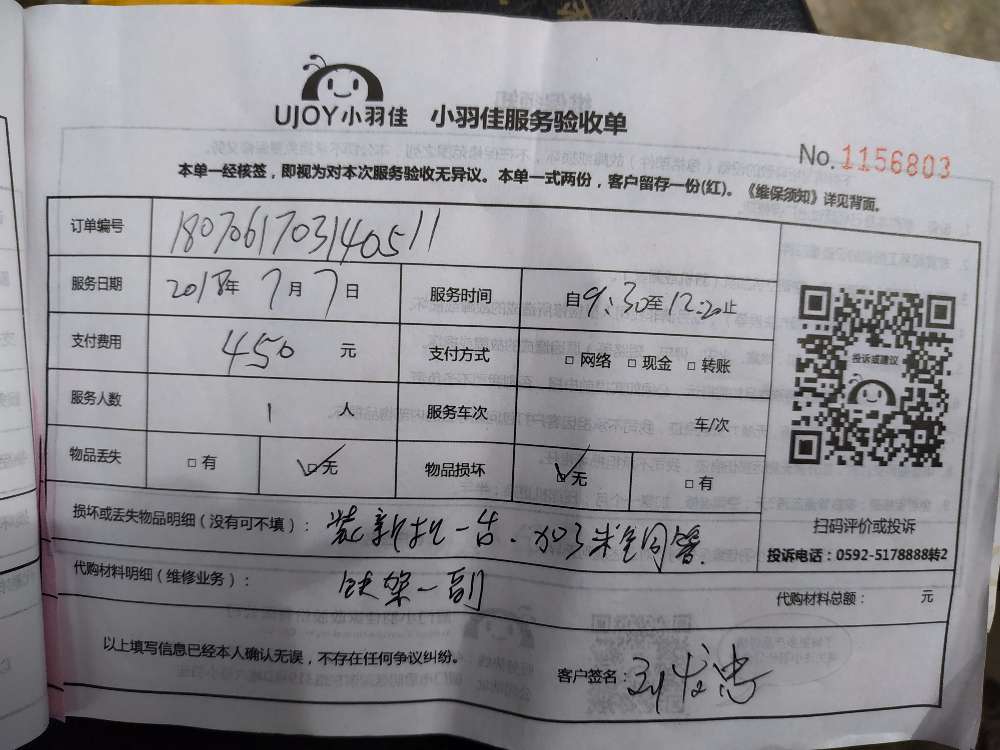 UJOY小羽佳 小羽佳服务验收单
No. 1156803
本单一经核签，即视为对本次服务验收无异议。本单一式两份，客户留存一份(红)。《维保须知》详见背面。
订单编号 1807061703140511
服务日期 2018年 7月 7日 服务时间 自9:30至12:20止
支付费用 450 元 支付方式 □ 网络 □ 现金 □ 转账
投诉或建议
服务人数 1 人 服务车次 车/次
物品丢失 □ 有 □ 无 物品损坏 □ 无 □ 有
扫码评价或投诉
损坏或丢失物品明细（没有可不填）： 装新机一台、加3米铜管
投诉电话：0592-5178888转2
代购材料明细（维修业务）： 铁架一副
代购材料总额： 元
以上填写信息已经本人确认无误，不存在任何争议纠纷。
客户签名：